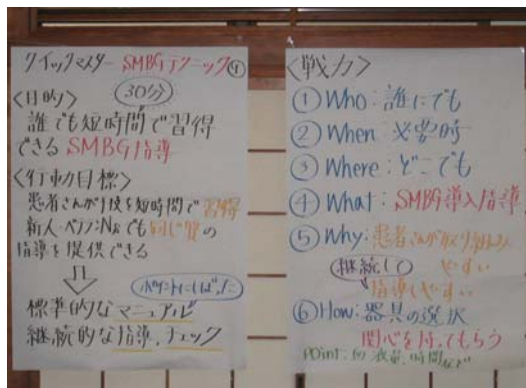 クイックマスター SMBGテクニック④
<目的> 30分
誰でも短時間で習得
できる SMBG指導
<行動目標>
患者さんが手技を短時間で習得
新人・ベテランNsでも同じ質の
指導を提供できる
⇩
ポイントにしぼった
標準的なマニュアル
継続的な指導、チェック
<戦力>
① Who: 誰にでも
② When: 必要時
③ Where: どこでも
④ What: SMBG導入指導
⑤ Why: 患者さんが取り組み
継続して やすい
指導しやすい
⑥ How: 器具の選択
関心を持ってもらう
Point: 血液量、時間など